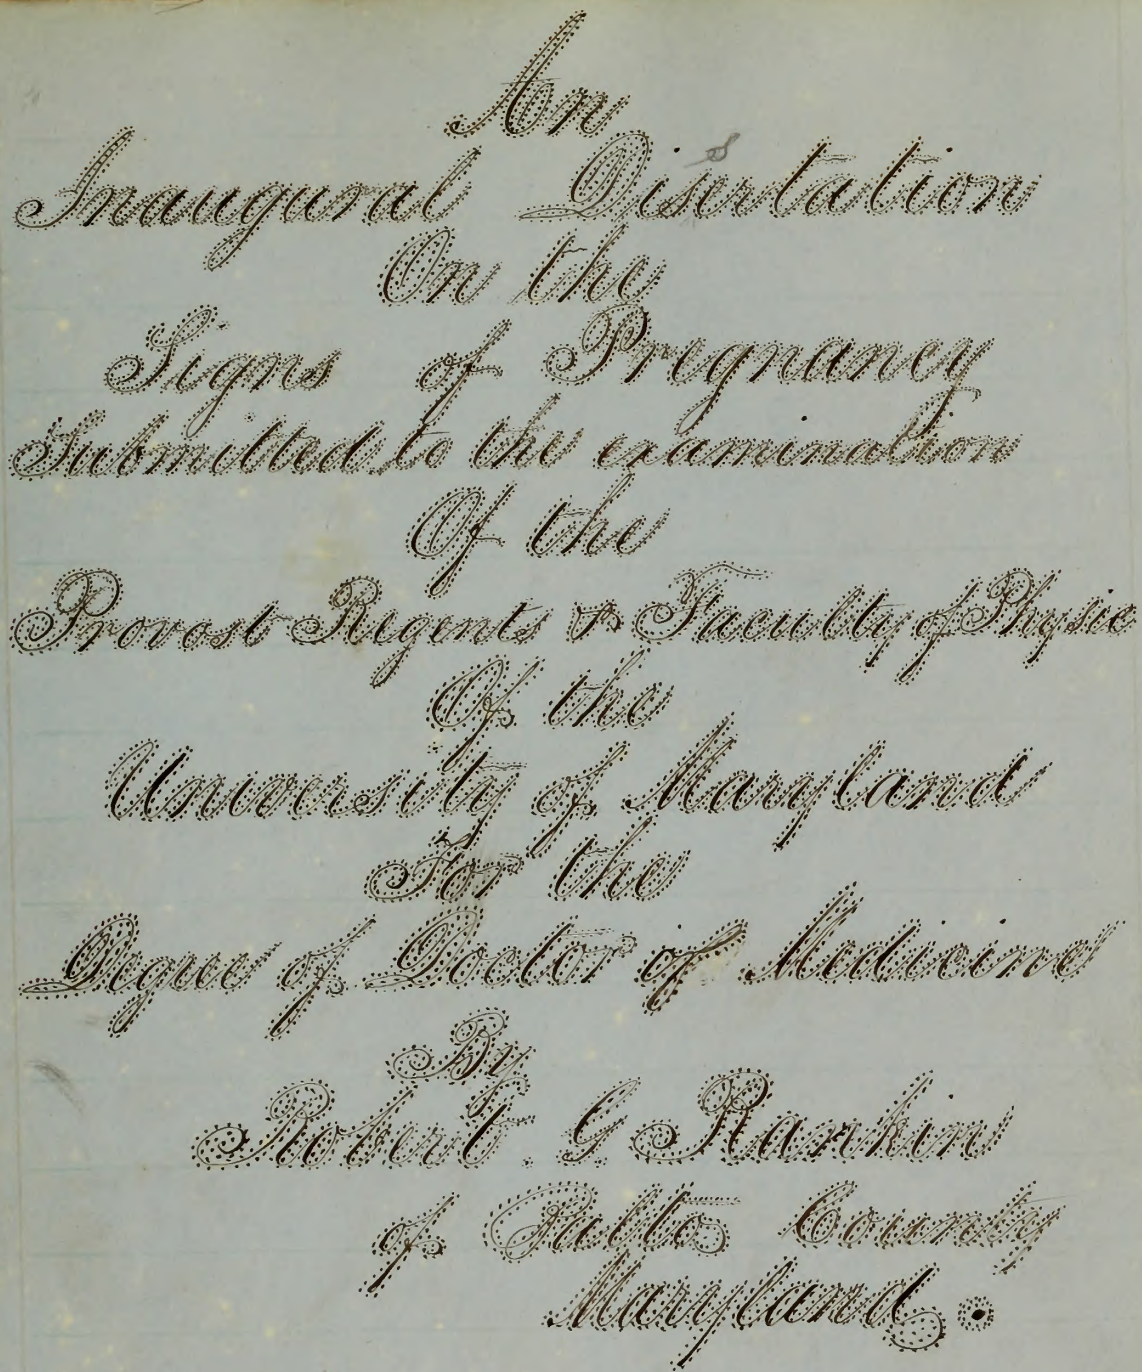 An
Inaugural Disertation
s
On the
Signs of Pregnancy
Submitted to the examination
Of the
Provost Regents & Faculty of Physic
Of the
University of Maryland
For the
Degree of Doctor of Medicine
By
Robert. G Rankin
of Balto County
Maryland.